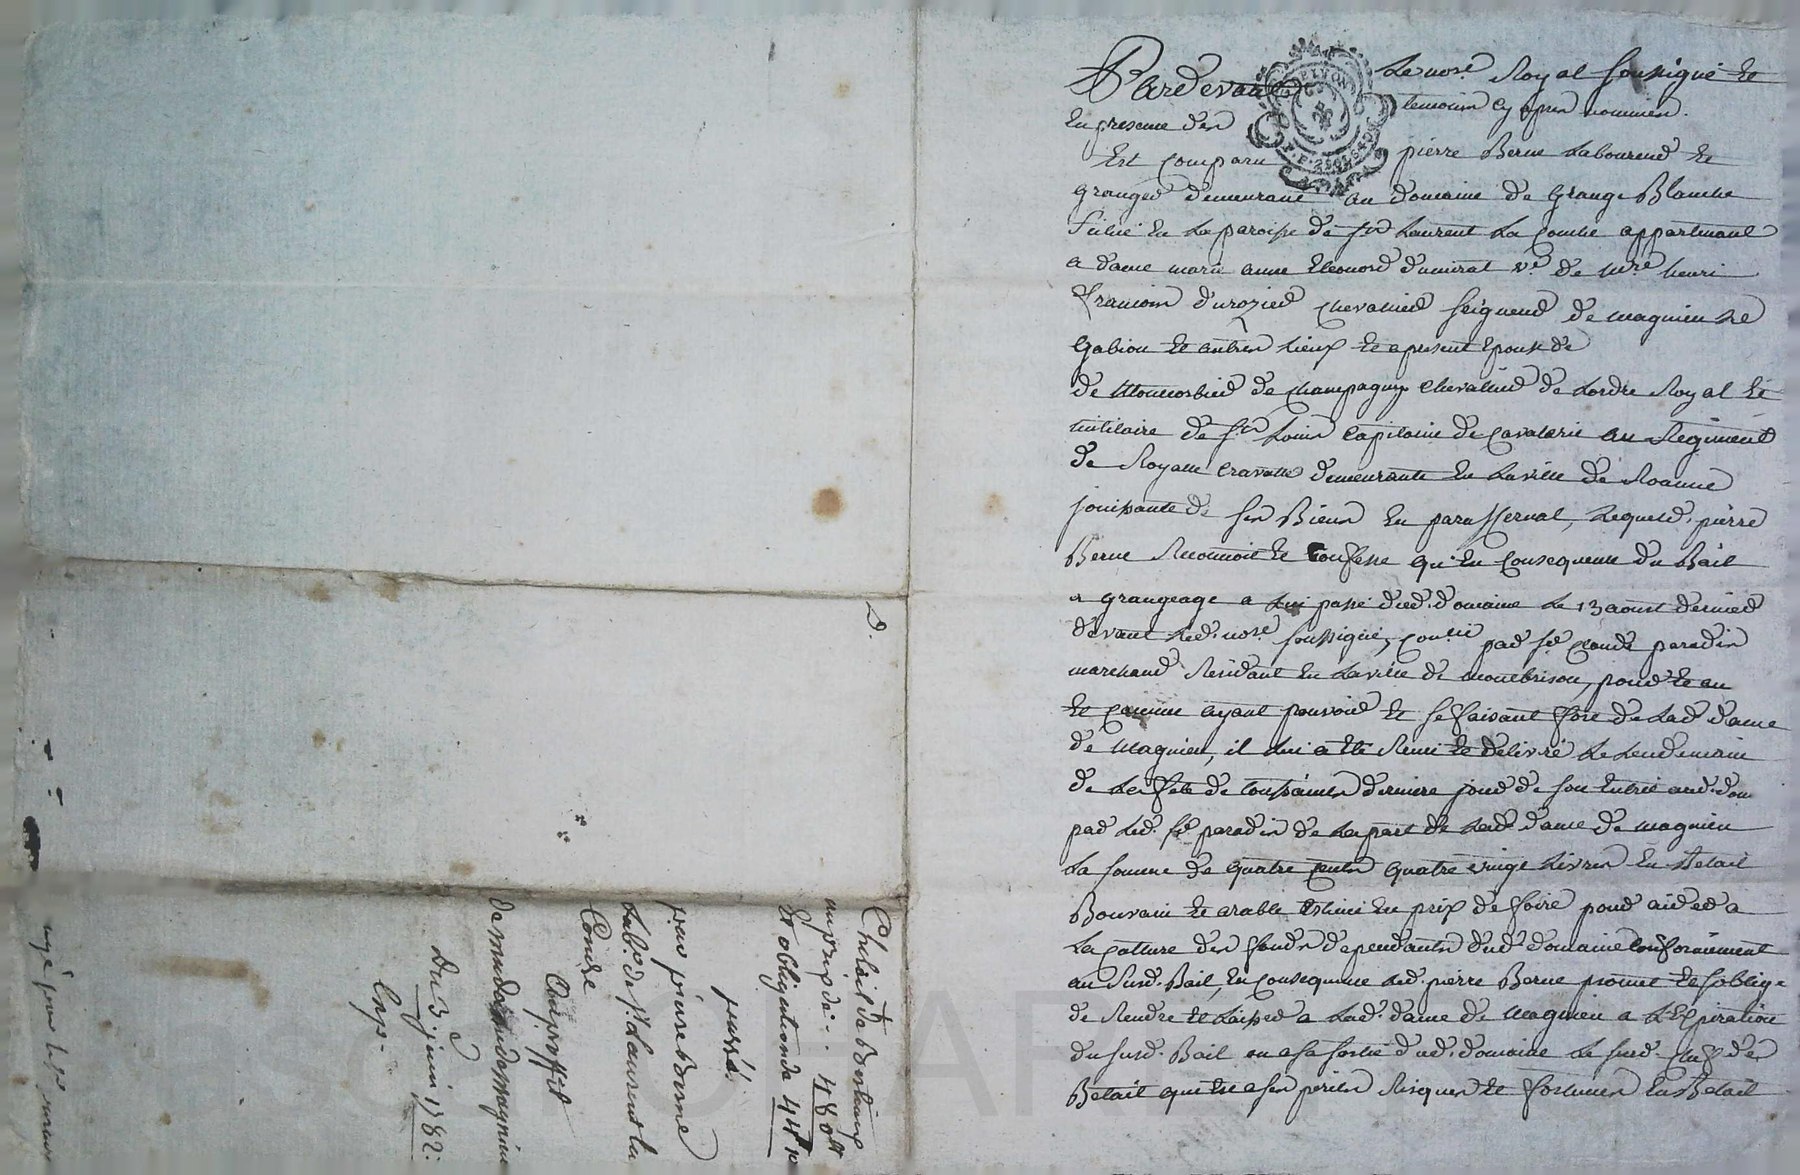 Pardevant Le nore Royal soussigné Et
En presence des temoins cy apres nommés.
Est comparu pierre Berne Laboureur Et
granger demeurant au domaine de Grange Blanche
Situé En La paroisse de st Laurent La Conche appartenant
a dame marie anne Eleonord dumirat ve de Mre henri
francois durozier chevalier seigneur de magnieu Le
Gabion Et autres Lieux Et a present Epouse de
de Champagny Chevalier de Lordre Royal Et
militaire de st Louis Capitaine de Cavalerie au Regiment
de Royalle Cravatte demeurante En La ville de Roanne
jouissante de ses Biens En parafernal, Lequel pierre
Berne Reconnoit Et Confesse qu'En Consequence du Bail
a grangeage a Lui passé dud. domaine Le 13 aoust dernier
devant Led. nore soussigné, par sr Claude paradis
marchand Residant En La ville de montbrison, pour Et au
Et Comme ayant pouvoir Et se faisant fort de Lad. dame
de Magnieu, il Lui a Eté Remi Et delivré Le Lendemain
de La fete de toussaints derniere jour de son Entrée aud. dom
par Led. sr paradis de La part de Lad. dame de magnieu
La somme de quatre Cents quatre vingt Livres En Betail
Bouvain Et arable Estimé En prix de foire pour aider a
La Culture des fonds dependants dud. domaine Conformement
au Susd. Bail, En Consequence Led. pierre Berne promet Et s'oblige
de Rendre Et Laisser a Lad. dame de Magnieu a L'Expiration
du susd. Bail ou a sa sortie dud. domaine Le susd. de
Betail qui Est a ses perils Risques Et fortunes En Betail
D.
de Bestiaux
au prix de .. 480#
Et obligation de 44#
passé.
par pierre Berne
Labr. de st Laurent la
Conche
Au proffit
de made de magnieu
Du 3e juin 1782.
Exp.